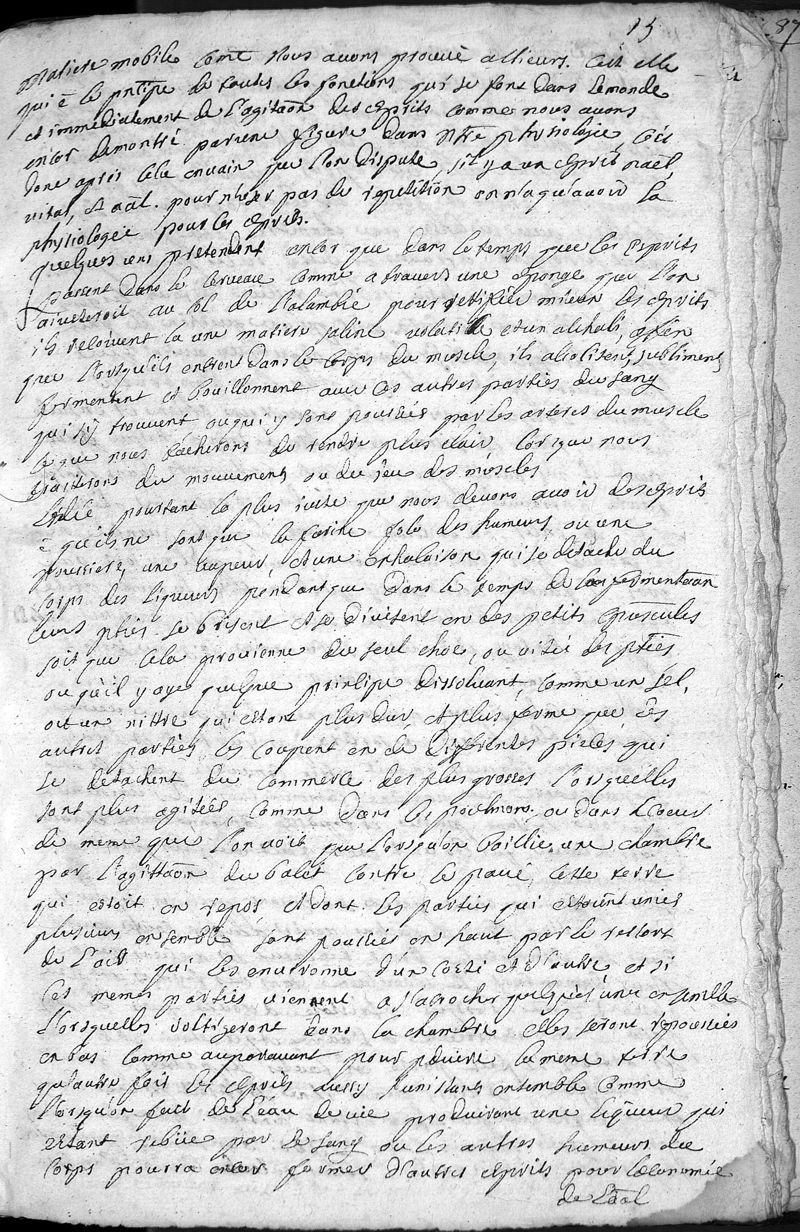 15
87
matiere mobile come nous avons prouvé ailleurs. C'est elle
qui ē le prīcipe de toutes les fonctions qui se font dans le monde
et immediatement de l'agitaōn des esprits comme nous avons
encor demontré par une figure dans nōtre physiologie, c'est
donc apres cela en vain que l'on dispute, s'il y a un esprit naēl,
vital, et aāl. pour n'user pas de repetition on n'a qu'a voir la
physiologie pour les esprits.
quelques uns pretendent encor que dans le temps que les esprits
passent dans le cerveau comme a travers une eponge que l'on
au col de l'alambic pour rectifier mieux les esprits
ils reçoivent la une matiere saline volatile et un alchali, affin
que lorsqu'ils entrent dans le corps du muscle, ils subliment,
fermentent et bouillonnent avec les autres parties du sang
qui s'y trouvent ou qui y sont poussées par les arteres du muscle
ce que nous tacherons de rendre plus clair lorsque nous
traiterons du mouvement ou du jeu des muscles
L'idée pourtant la plus juste que nous devons avoir des esprits
ē qu'ils ne sont que la farine fole des humeurs, ou une
poussiere, une vapeur, et une exhalaison qui se detache du
corps des liqueurs pendant que dans le temps de la fermentaōn
leurs pties se brisent et se divisent en des petits opuscules
soit que cela provienne du seul choc, ou des pties
ou qu'il y aye quelque principe dissoluant, comme un sel,
ou un nittre qui estant plus dur, et plus ferme que les
autres parties, les coupent en de differentes pieces qui
se detachent du commerce des plus grosses lorsqu'elles
sont plus agitées, comme dans les poulmons, ou dans le coeur
de meme que l'on voit que lorsqu'on ballie une chambre
par l'agittaōn du balet contre le pavé, cette terre
qui estoit en repos, et dont les parties qui estoient unies
plusieurs ensemble sont poussées en haut par le ressort
de l'air qui les environne d'un costé et d'autre et si
ces memes parties viennent a s'acrocher quelques unes ensemble
lorsqu'elles voltigeront dans la chambre elles seront repoussées
en bas comme auparavant pour produire la meme terre
qu'autre fois les esprits aussy s'unissants ensemble comme
lorsqu'on fait de l'eau de vie produisent une liqueur qui
estant par le sang ou les autres humeurs du
corps pourra encor former d'autres esprits pour l'oeconomie
de l'aāl